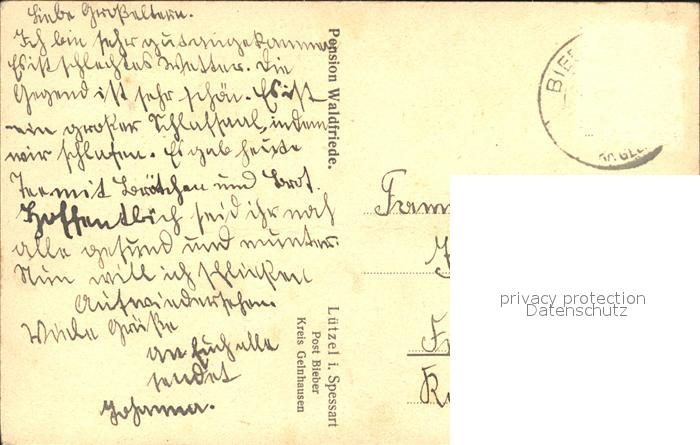 Liebe Großeltern.
Ich bin sehr gut angekommen
Es ist schlechtes Wetter. Die
Gegend ist sehr schön. Es ist
ein großer Schlafsaal, indem
wir schlafen. Es gab heute
Tee mit Brötchen und Brot.
Hoffentlich seid ihr noch
alle gesund und munter.
Nun will ich schließen
Aufwiedersehen.
Viele Grüße
an Euch alle
sendet
Johanna.
Pension Waldfriede.
Lützel i. Spessart
Post Bieber
Kreis Gelnhausen
BIE
GEL
Fam
privacy protection
Datenschutz